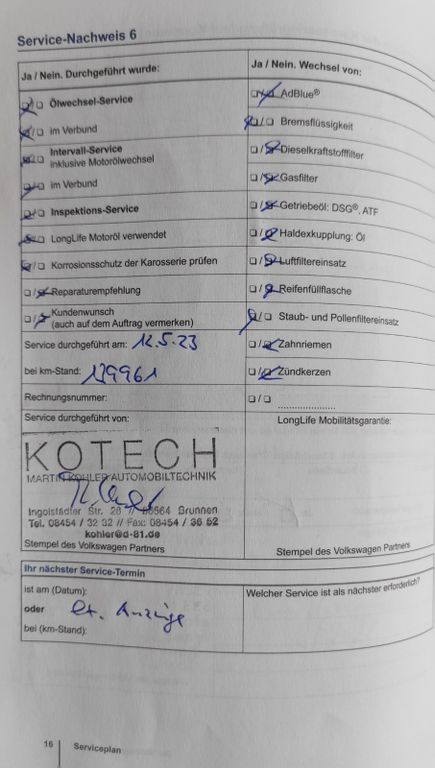 Service-Nachweis 6
Ja / Nein. Durchgeführt wurde:
Ölwechsel-Service
im Verbund
Intervall-Service
inklusive Motorölwechsel
im Verbund
Inspektions-Service
LongLife Motoröl verwendet
Korrosionsschutz der Karosserie prüfen
Reparaturempfehlung
Kundenwunsch
(auch auf dem Auftrag vermerken)
Service durchgeführt am: 12.5.23
bei km-Stand: 139961
Rechnungsnummer:
Service durchgeführt von:
KOTECH
MARTIN KOHLER AUTOMOBILTECHNIK
Ingolstädter Str. 28 // 86564 Brunnen
Tel. 08454 / 32 32 // Fax: 08454 / 36 52
kohler@d-81.de
Stempel des Volkswagen Partners
Ja / Nein. Wechsel von:
AdBlue®
Bremsflüssigkeit
Dieselkraftstofffilter
Gasfilter
Getriebeöl: DSG®, ATF
Haldexkupplung: Öl
Luftfiltereinsatz
Reifenfüllflasche
Staub- und Pollenfiltereinsatz
Zahnriemen
Zündkerzen
LongLife Mobilitätsgarantie:
Stempel des Volkswagen Partners
Ihr nächster Service-Termin
ist am (Datum):
oder lt. Anzeige
bei (km-Stand):
Welcher Service ist als nächster erforderlich?
16 Serviceplan